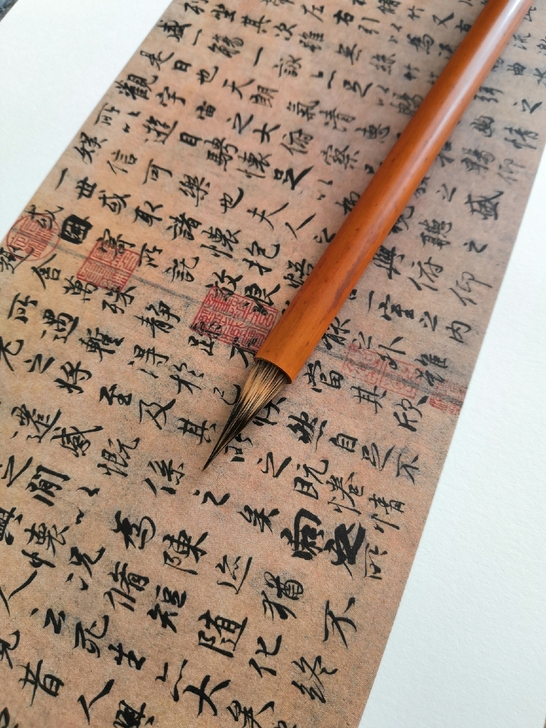 左右引以為
列坐其次雖無絲竹之
盛一觴一詠亦足以暢幽情
是日也天朗氣清惠暢仰
觀宇宙之大俯察之盛
所以遊目騁懷足以聽之
娛信可樂也夫人之與俯仰
一世或取諸懷抱一室之內
或因寄所託放浪之外雖
舍萬殊靜躁不當其欣
所遇暫得於己怏然自足不
老之將至及其所之既惓情
遷感慨係之矣向之所
之間以為陳迹猶不
興懷況脩短隨化終
人云死生亦大矣
昔人興